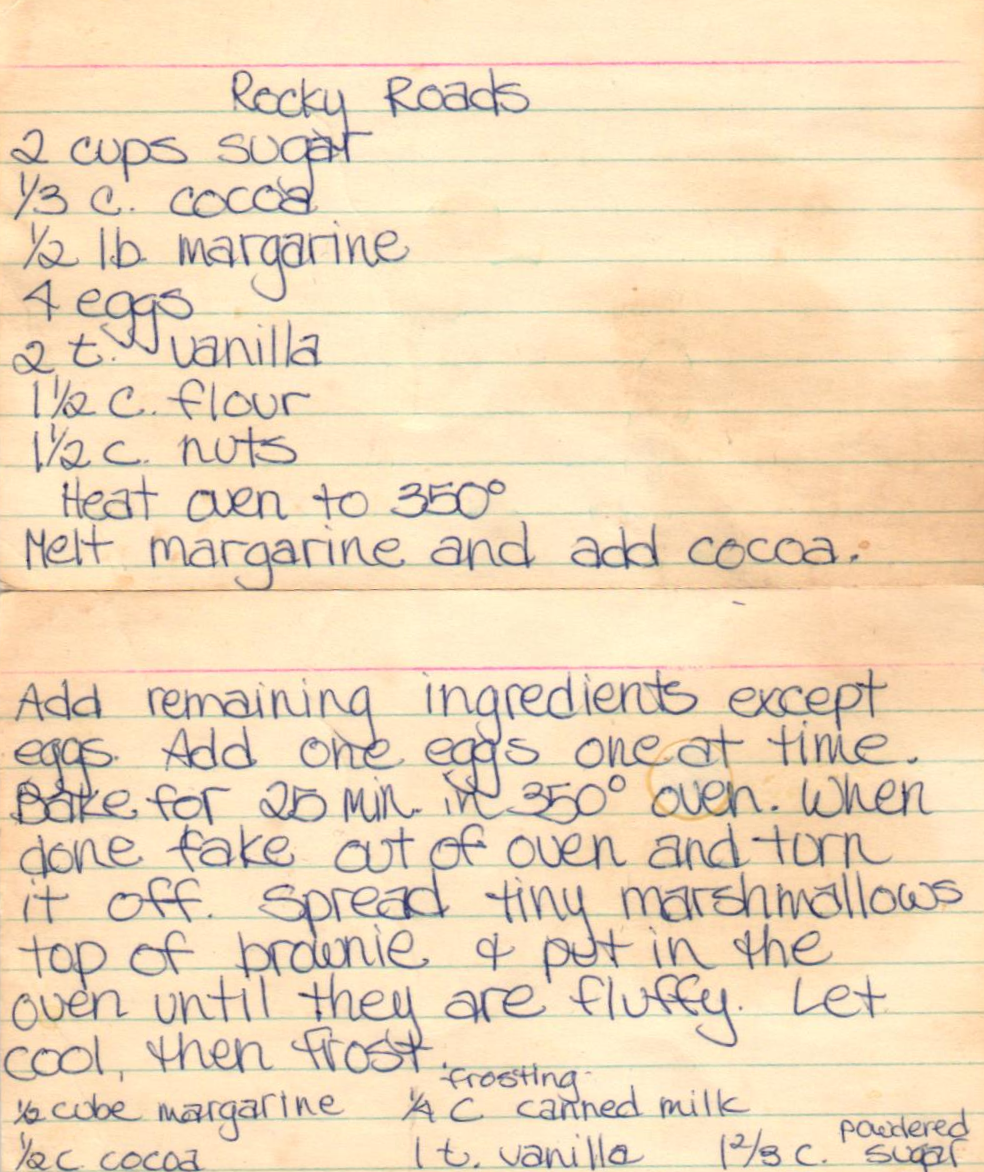 Rocky Roads
2 cups sugar
1/3 c. cocoa
1/2 lb margarine
4 eggs
2 t. vanilla
1 1/2 c. flour
1 1/2 c. nuts
Heat oven to 350°
Melt margarine and add cocoa.
Add remaining ingredients except
eggs. Add one eggs one at time.
Bake for 25 min. in 350° oven. When
done take out of oven and turn
it off. Spread tiny marshmallows
top of brownie & put in the
oven until they are fluffy. Let
cool, then frost.
frosting
1/2 cube margarine 1/4 C canned milk
1/2 c. cocoa 1 t. vanilla 1 2/3 c. powdered sugar